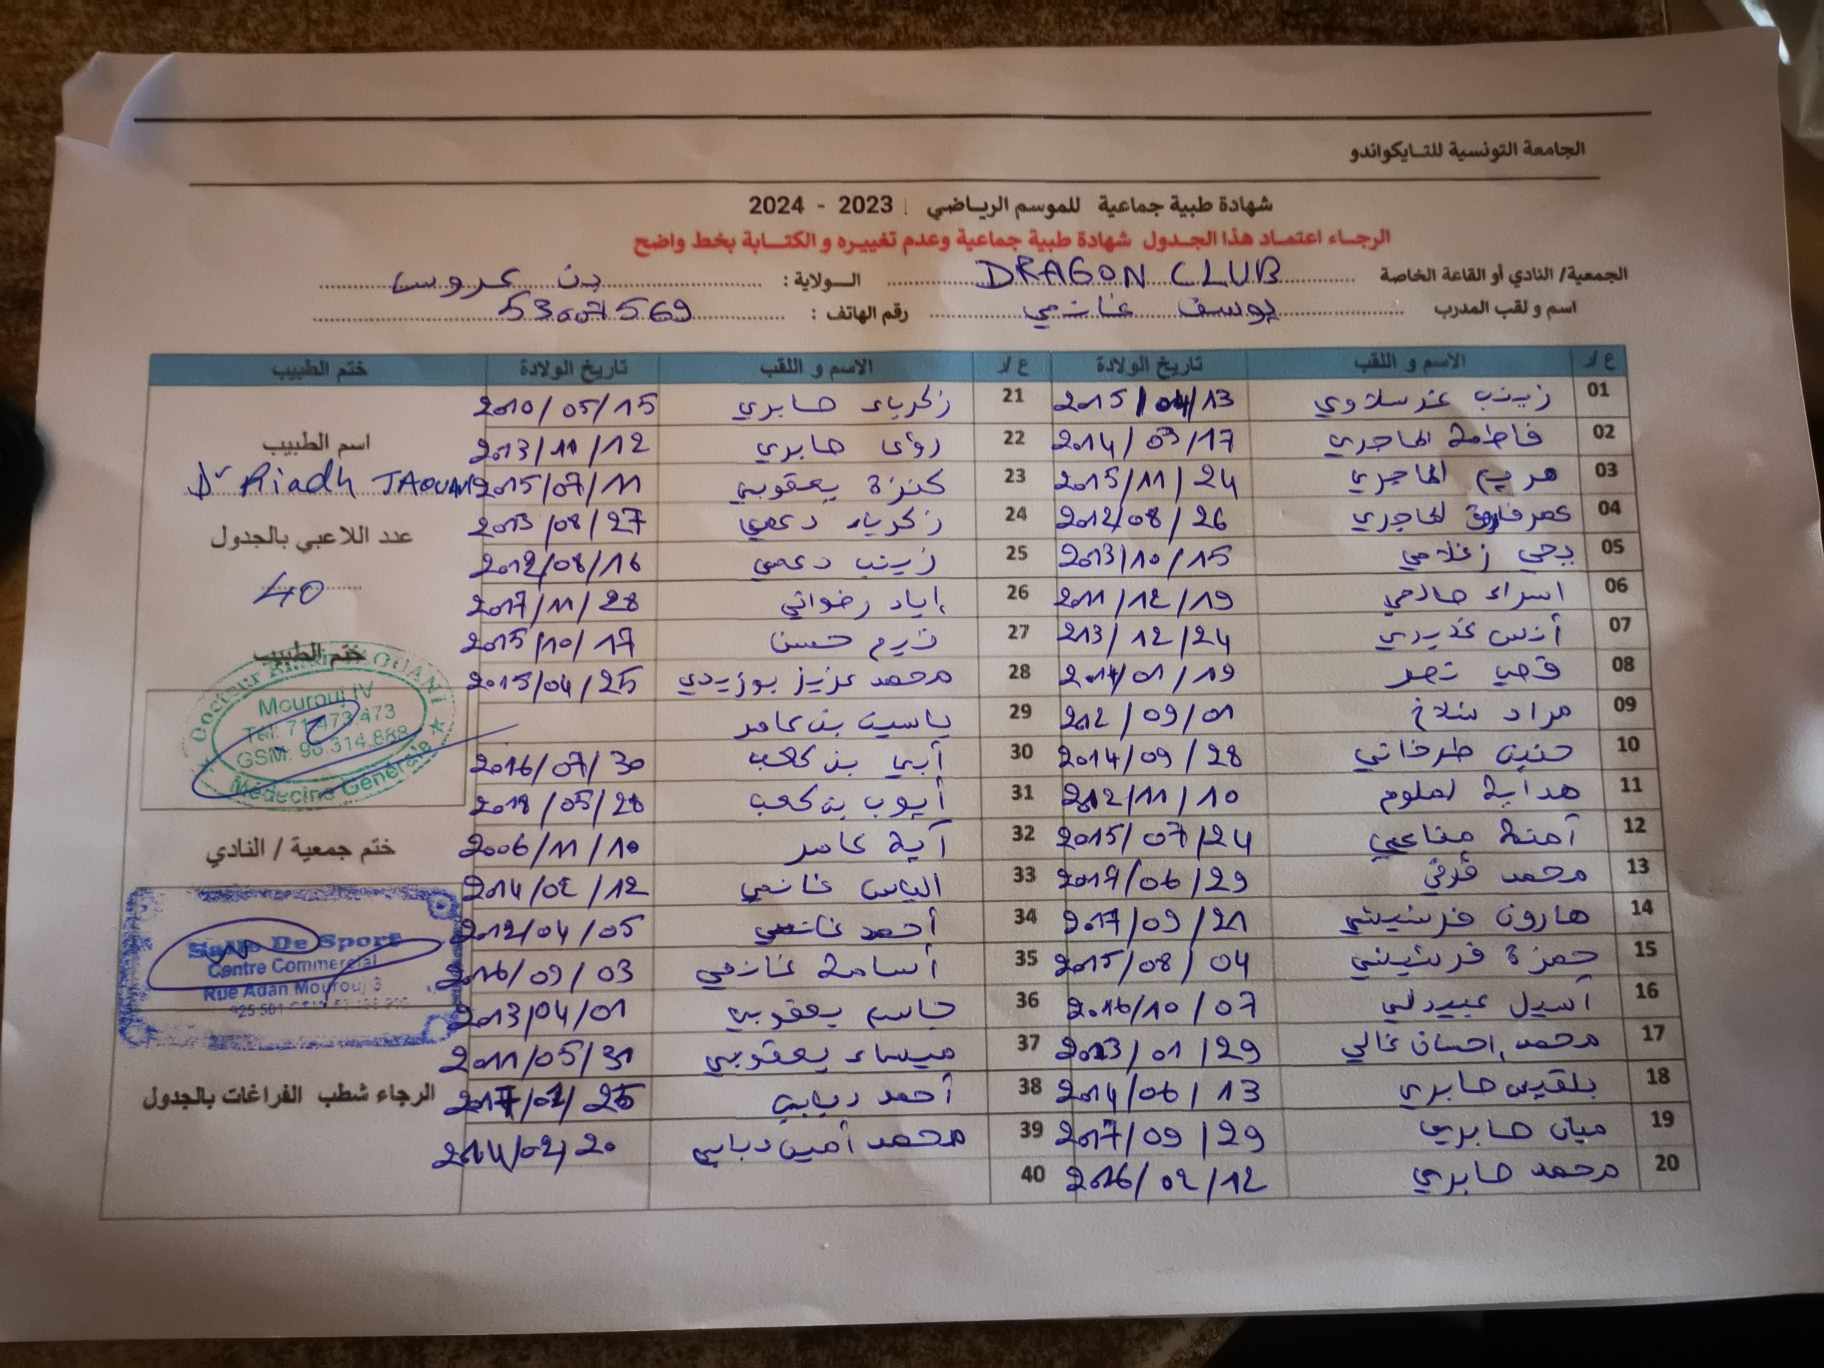 الجامعة التونسية للتايكواندو
شهادة طبية جماعية للموسم الرياضي 2023 - 2024
الرجاء اعتماد هذا الجدول شهادة طبية جماعية وعدم تغييره و الكتابة بخط واضح
الجمعية/ النادي أو القاعة الخاصة DRAGON CLUB الولاية : بن عروس
اسم و لقب المدرب يوسف غانمي رقم الهاتف : 53007569
ع/ر الاسم و اللقب تاريخ الولادة ع/ر الاسم و اللقب تاريخ الولادة ختم الطبيب
01 زينب 2015/04/13 21 زكرياء صابري 2010/05/15
02 فاطمة الماجري 2014/03/17 22 رؤى صابري 2013/11/12
03 مريم الماجري 2015/11/24 23 كنزة يعقوبي 2015/07/11
04 عمر فاروق الماجري 2012/08/26 24 زكرياء دعمي 2013/08/27
05 يحي زغلامي 2013/10/15 25 زينب دعمي 2012/08/16
06 اسراء صالحي 2011/12/19 26 إياد رضواني 2017/11/28
07 أنس 213/12/24 27 حسن 2015/10/17
08 قصي نصر 2014/01/19 28 محمد عزيز بوزيدي 2015/04/25
09 مراد 212/09/01 29 ياسين بن عامر
10 حنين طرخاني 2014/09/28 30 أبي بن كعب 2016/07/30
11 هداية لعلوم 2012/11/10 31 أيوب بن كعب 2018/05/28
12 آمنة مناعي 2015/07/24 32 آية عامر 2006/11/10
13 محمد 2017/06/29 33 الياس غانمي 2014/02/12
14 هارون فرشيشي 2017/09/21 34 أحمد غانمي 2012/04/05
15 حمزة فرشيشي 2015/08/04 35 أسامة غانمي 2016/09/03
16 آسيل عبيدلي 2016/10/07 36 جاسم يعقوبي 2013/04/01
17 محمد إحسان غالي 2013/01/29 37 ميساء يعقوبي 2011/05/31
18 بلقيس صابري 2014/06/13 38 أحمد دبابي
19 ميان صابري 2017/09/29 39 محمد أمين دبابي 2014/02/20
20 محمد صابري 2016/02/12 40
اسم الطبيب
Dr Riadh JAOUANI
عدد اللاعبي بالجدول
40
ختم الطبيب
Mourouj IV
Tél: 71.473.473
GSM: 98.314.688
Médecine Générale
ختم جمعية / النادي
Salle De Sport
Centre Commercial
Rue Adan Mourouj 3
الرجاء شطب الفراغات بالجدول